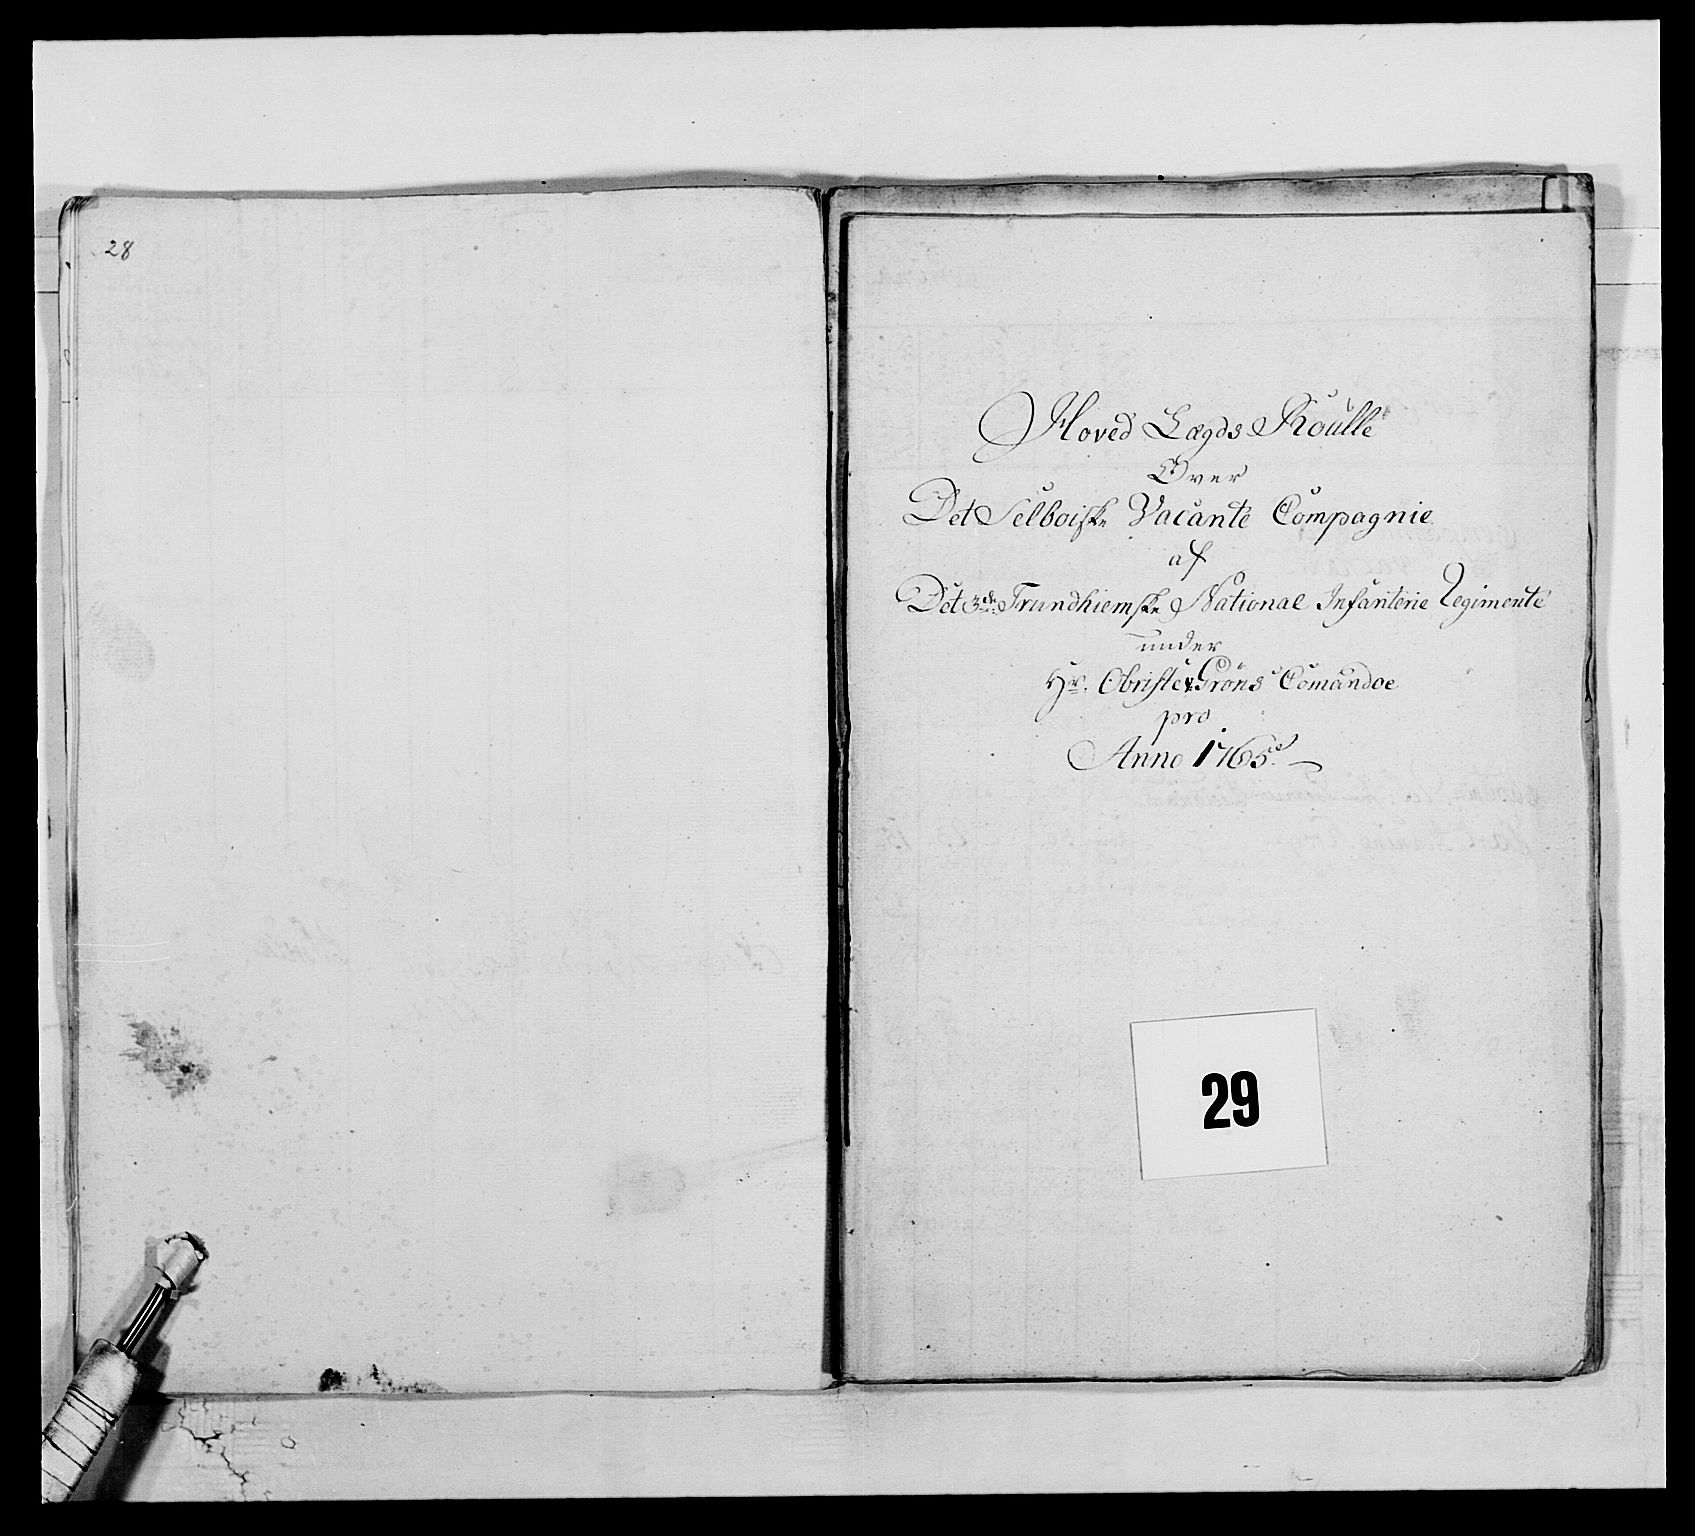 28
Hoved Lægds Roulle
Over
Det Selboiske Vacante Compagnie
af
Det 2de Trundhiemske National Infanterie Regimente
under
Hr. Obriste v. Gröns Comandoe
pro
Anno 1765
29